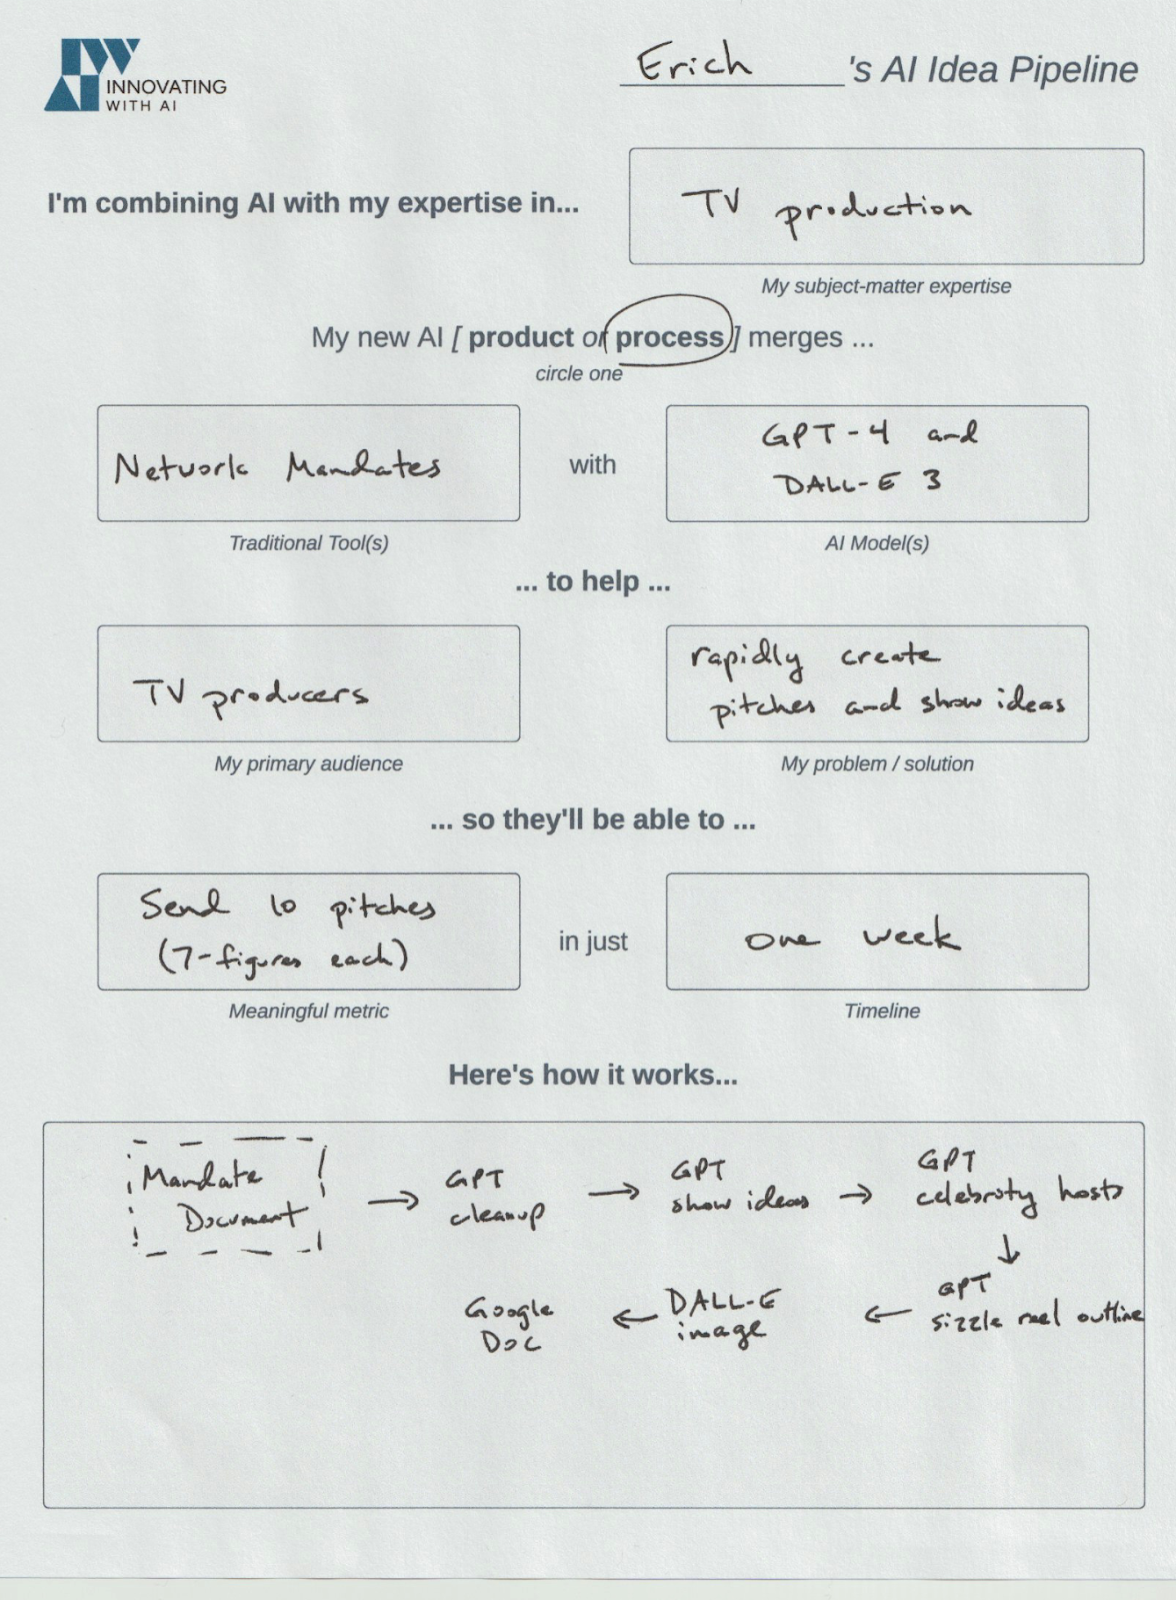 INNOVATING
WITH AI
Erich 's AI Idea Pipeline
I'm combining AI with my expertise in...
TV production
My subject-matter expertise
My new AI [ product or process ] merges ...
circle one
Network Mandates
with
GPT-4 and
DALL-E 3
Traditional Tool(s)
AI Model(s)
... to help ...
TV producers
rapidly create
pitches and show ideas
My primary audience
My problem / solution
... so they'll be able to ...
Send 10 pitches
(7-figures each)
in just
one week
Meaningful metric
Timeline
Here's how it works...
Mandate
Document
→ GPT
cleanup
→ GPT
show ideas
→ GPT
celebrity hosts
↓
GPT
sizzle reel outline
← DALL-E
image
← Google
Doc